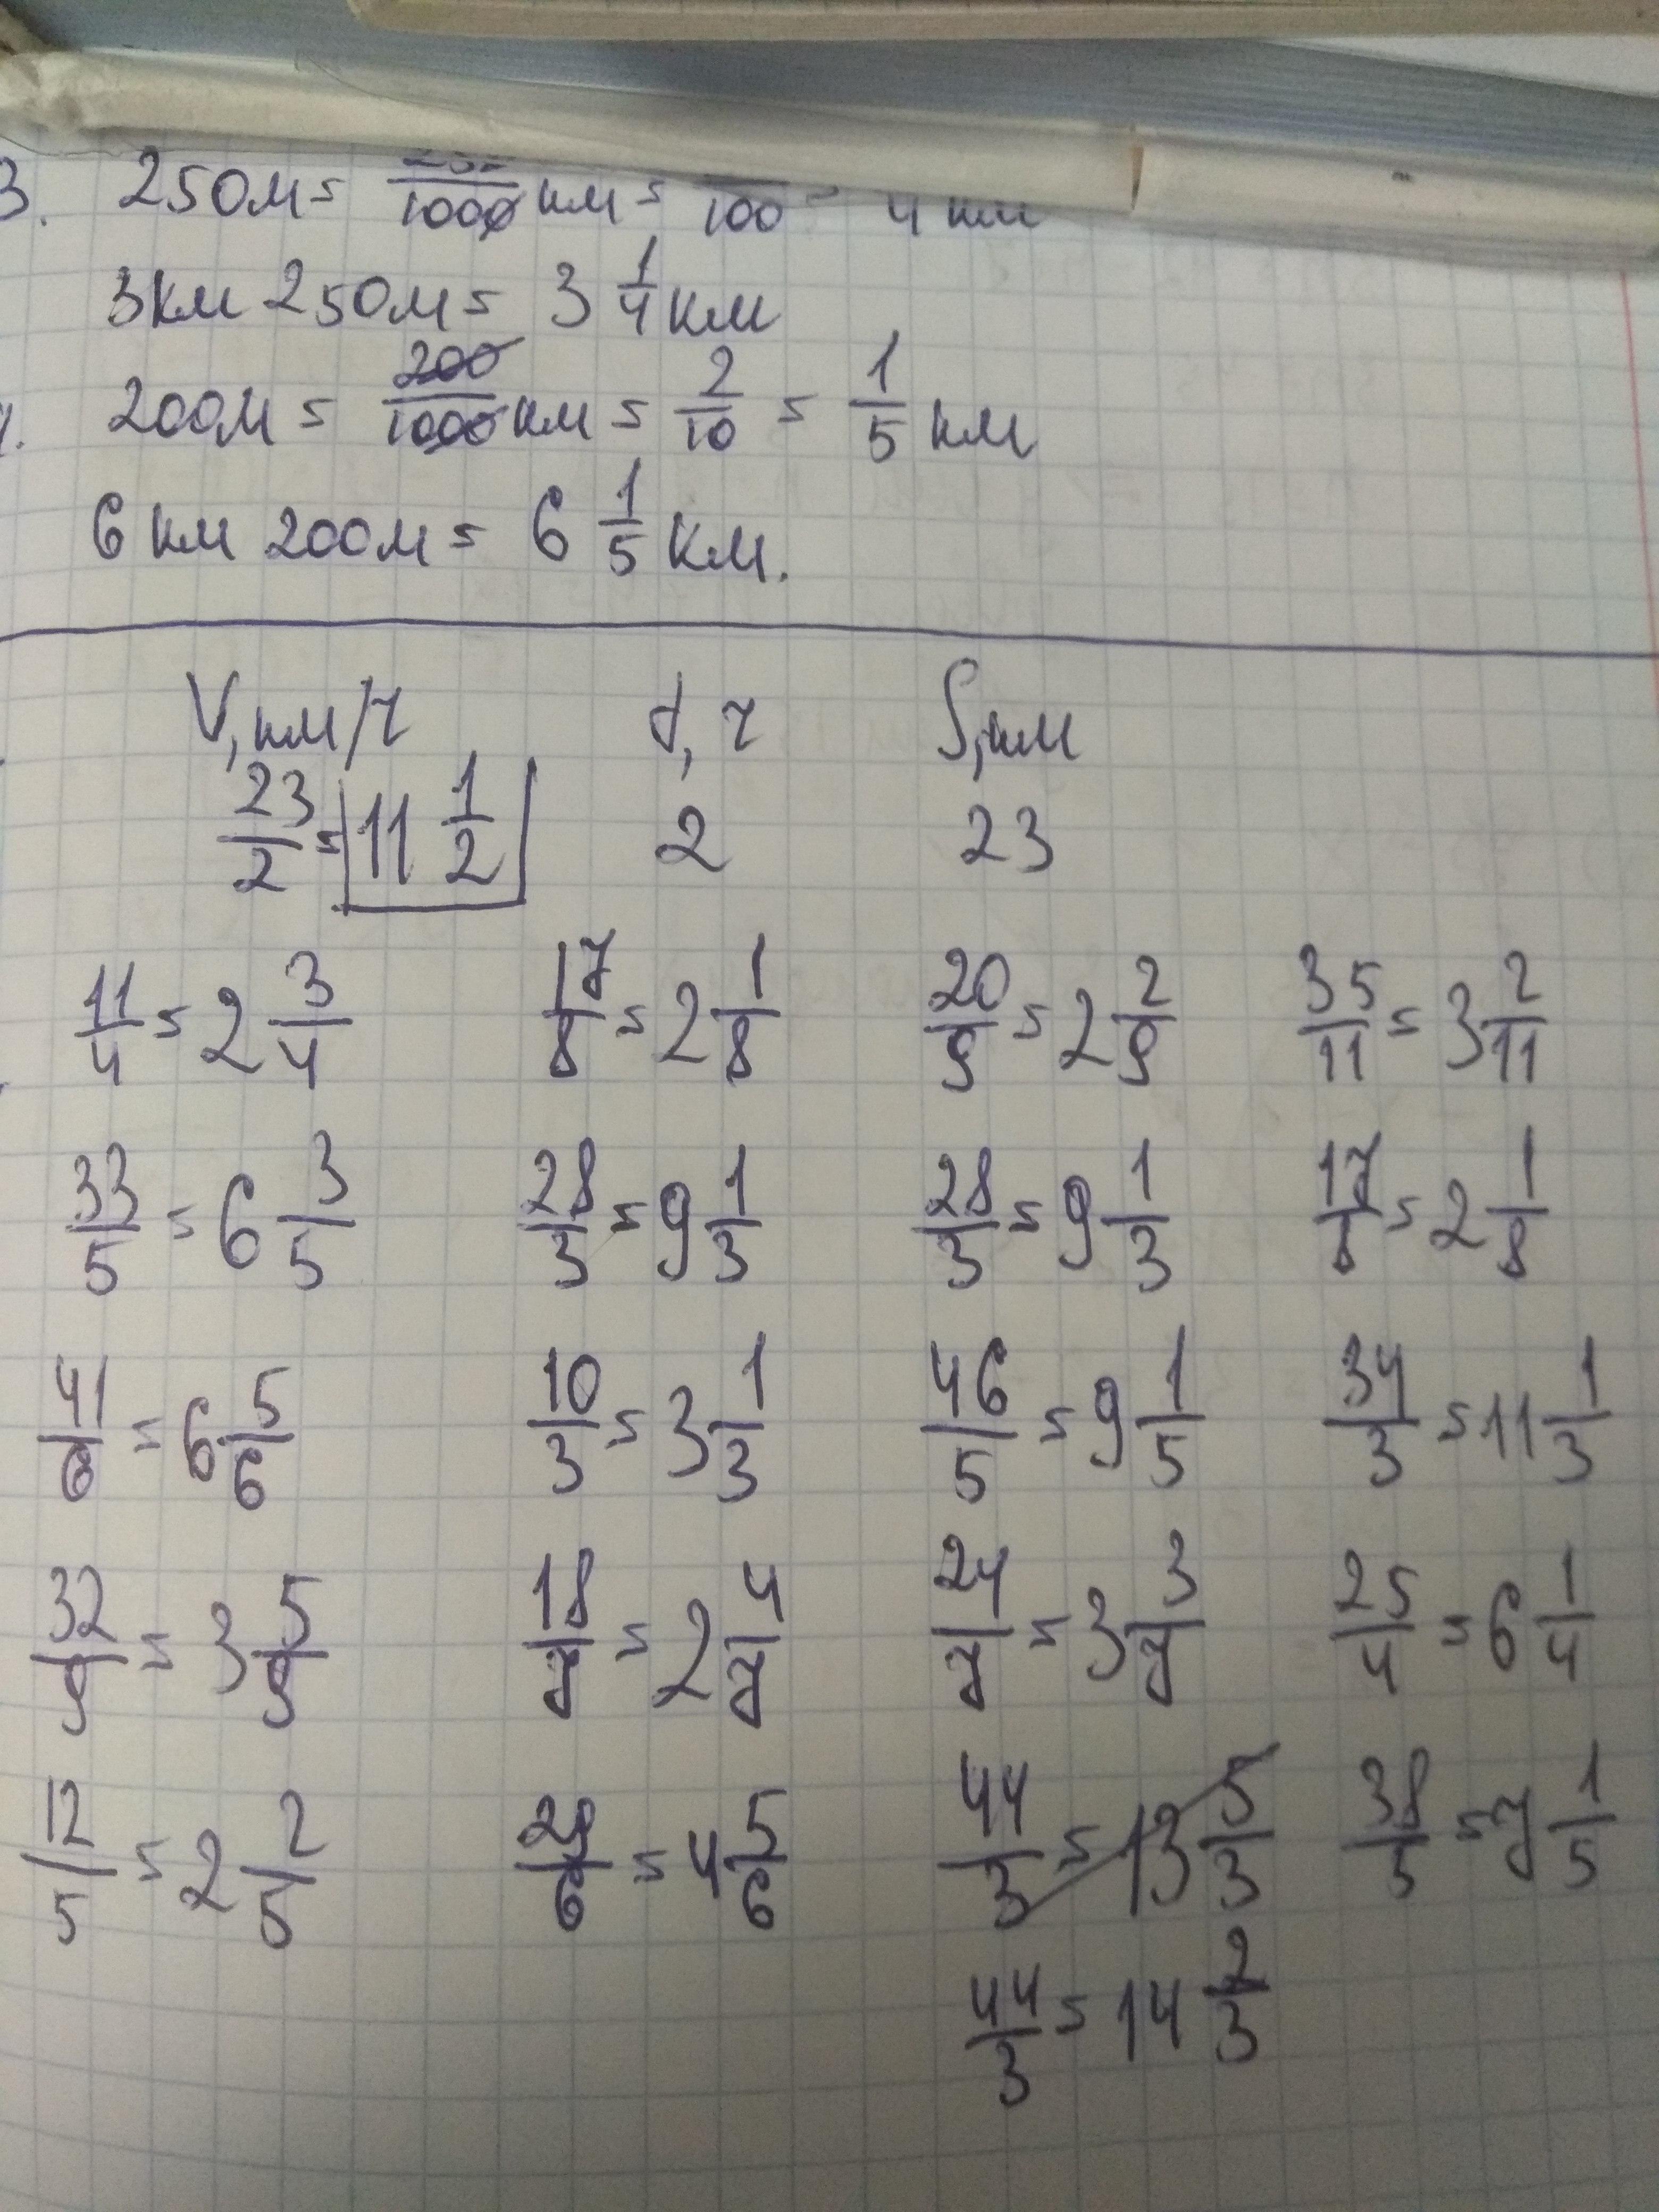 3. 250м = 250/1000 км = /100 = /4 км
3км 250м = 3 1/4 км
200м = 200/1000 км = 2/10 = 1/5 км
6 км 200м = 6 1/5 км.
V, км/ч t, ч S, км
23/2 = 11 1/2 2 23
11/4 = 2 3/4 17/8 = 2 1/8 20/9 = 2 2/9 35/11 = 3 2/11
33/5 = 6 3/5 28/3 = 9 1/3 28/3 = 9 1/3 17/8 = 2 1/8
41/6 = 6 5/6 10/3 = 3 1/3 46/5 = 9 1/5 34/3 = 11 1/3
32/9 = 3 5/9 18/7 = 2 4/7 24/7 = 3 3/7 25/4 = 6 1/4
12/5 = 2 2/5 29/6 = 4 5/6 44/3 = 13 5/3 38/5 = 7 1/5
44/3 = 14 2/3